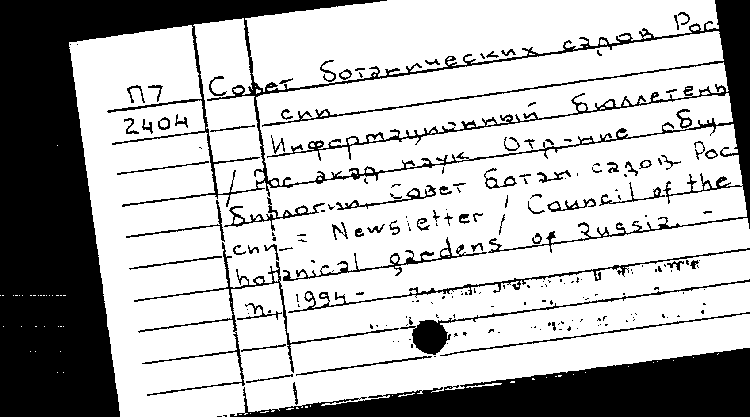 П7 Совет ботанических садов Рос-
2404 сии
Информационный бюллетень
/ Рос. акад. наук. Отд-ние общ.
биологии, Совет ботан. садов Рос-
сии = Newsletter / Council of the
botanical gardens of Russia. -
М., 1994 -